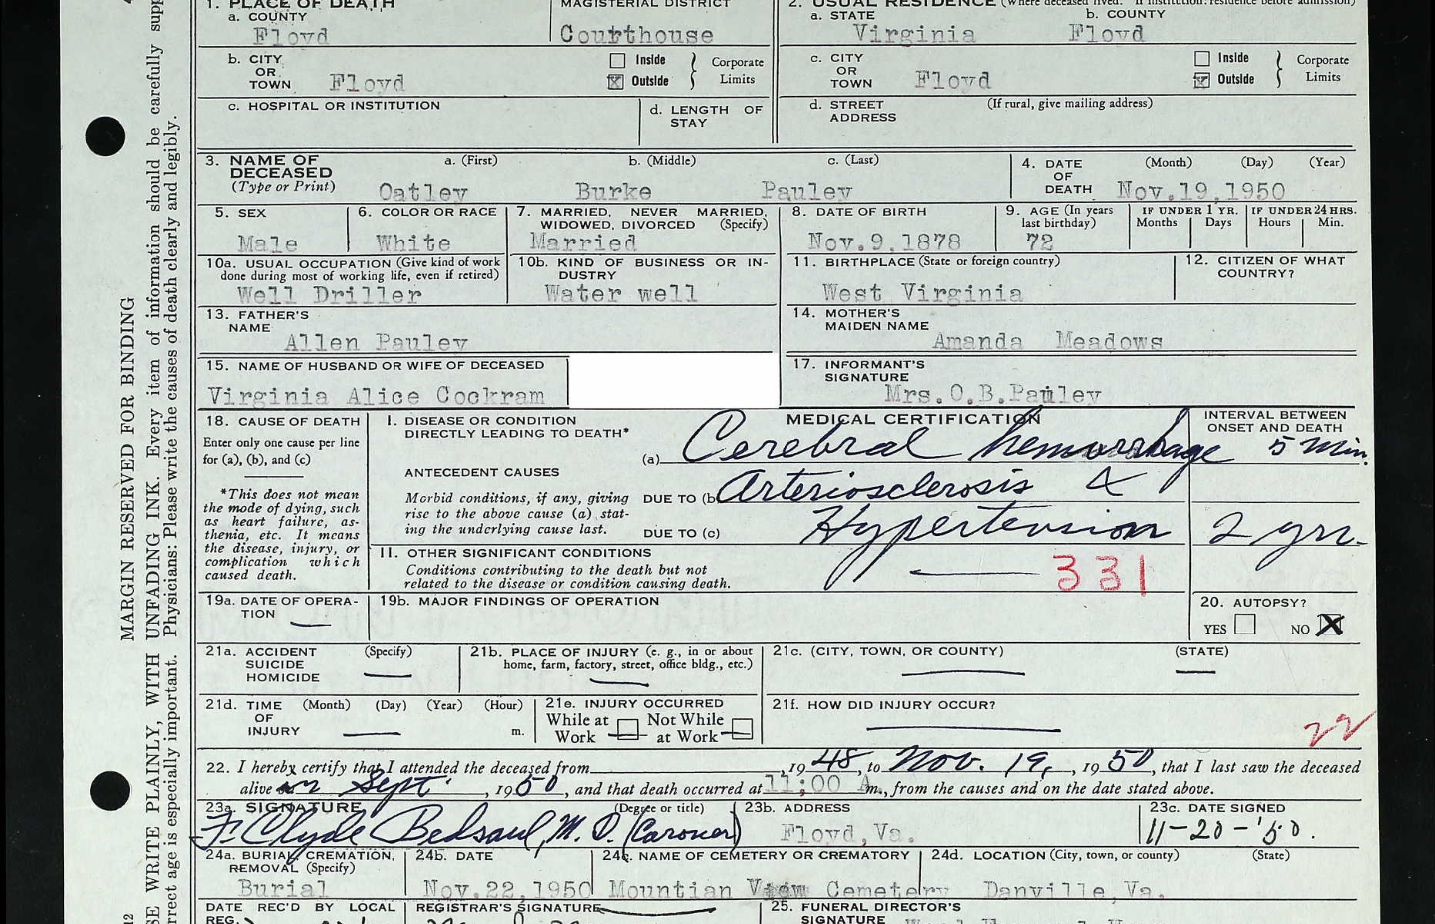 1. PLACE OF DEATH
a. COUNTY
Floyd
MAGISTERIAL DISTRICT
Courthouse
2. USUAL RESIDENCE (Where deceased lived. If institution: residence before admission)
a. STATE
Virginia
b. COUNTY
Floyd
b. CITY OR TOWN Floyd
Inside
Outside
Corporate Limits
c. CITY OR TOWN Floyd
Inside
Outside
Corporate Limits
c. HOSPITAL OR INSTITUTION
d. LENGTH OF STAY
d. STREET ADDRESS (If rural, give mailing address)
3. NAME OF DECEASED (Type or Print)
a. (First) b. (Middle) c. (Last)
Oatley Burke Pauley
4. DATE OF DEATH (Month) (Day) (Year)
Nov.19,1950
5. SEX
Male
6. COLOR OR RACE
White
7. MARRIED, NEVER MARRIED, WIDOWED, DIVORCED (Specify)
Married
8. DATE OF BIRTH
Nov.9,1878
9. AGE (In years last birthday)
72
IF UNDER 1 YR.
Months Days
IF UNDER 24 HRS.
Hours Min.
10a. USUAL OCCUPATION (Give kind of work done during most of working life, even if retired)
Well Driller
10b. KIND OF BUSINESS OR INDUSTRY
Water well
11. BIRTHPLACE (State or foreign country)
West Virginia
12. CITIZEN OF WHAT COUNTRY?
13. FATHER'S NAME
Allen Pauley
14. MOTHER'S MAIDEN NAME
Amanda Meadows
15. NAME OF HUSBAND OR WIFE OF DECEASED
Virginia Alice Cockram
17. INFORMANT'S SIGNATURE
Mrs.O.B.Pauley
18. CAUSE OF DEATH
Enter only one cause per line for (a), (b), and (c)
*This does not mean the mode of dying, such as heart failure, asthenia, etc. It means the disease, injury, or complication which caused death.
MEDICAL CERTIFICATION
I. DISEASE OR CONDITION DIRECTLY LEADING TO DEATH*
(a) Cerebral hemorrhage
INTERVAL BETWEEN ONSET AND DEATH
5 min.
ANTECEDENT CAUSES
Morbid conditions, if any, giving rise to the above cause (a) stating the underlying cause last.
DUE TO (b) Arteriosclerosis &
DUE TO (c) Hypertension
2 yrs.
II. OTHER SIGNIFICANT CONDITIONS
Conditions contributing to the death but not related to the disease or condition causing death.
331
19a. DATE OF OPERATION
19b. MAJOR FINDINGS OF OPERATION
20. AUTOPSY?
YES NO X
21a. ACCIDENT SUICIDE HOMICIDE (Specify)
21b. PLACE OF INJURY (e. g., in or about home, farm, factory, street, office bldg., etc.)
21c. (CITY, TOWN, OR COUNTY) (STATE)
21d. TIME OF INJURY (Month) (Day) (Year) (Hour) m.
21e. INJURY OCCURRED
While at Work Not While at Work
21f. HOW DID INJURY OCCUR?
22
22. I hereby certify that I attended the deceased from , 1948, to Nov. 19, , 1950, that I last saw the deceased
alive in Sept. , 1950, and that death occurred at 11:00 A m., from the causes and on the date stated above.
23a. SIGNATURE (Degree or title)
F. Clyde Bedsaul, M.D. (Coroner)
23b. ADDRESS
Floyd,Va.
23c. DATE SIGNED
11-20-'50.
24a. BURIAL, CREMATION, REMOVAL (Specify)
Burial
24b. DATE
Nov.22,1950
24c. NAME OF CEMETERY OR CREMATORY
Mountian View Cemetery
24d. LOCATION (City, town, or county) (State)
Danville,Va.
DATE REC'D BY LOCAL REG.
REGISTRAR'S SIGNATURE
25. FUNERAL DIRECTOR'S SIGNATURE
MARGIN RESERVED FOR BINDING
WRITE PLAINLY, WITH UNFADING INK. Every item of information should be carefully supp
age is especially important. Physicians: Please write the causes of death clearly and legibly.
12